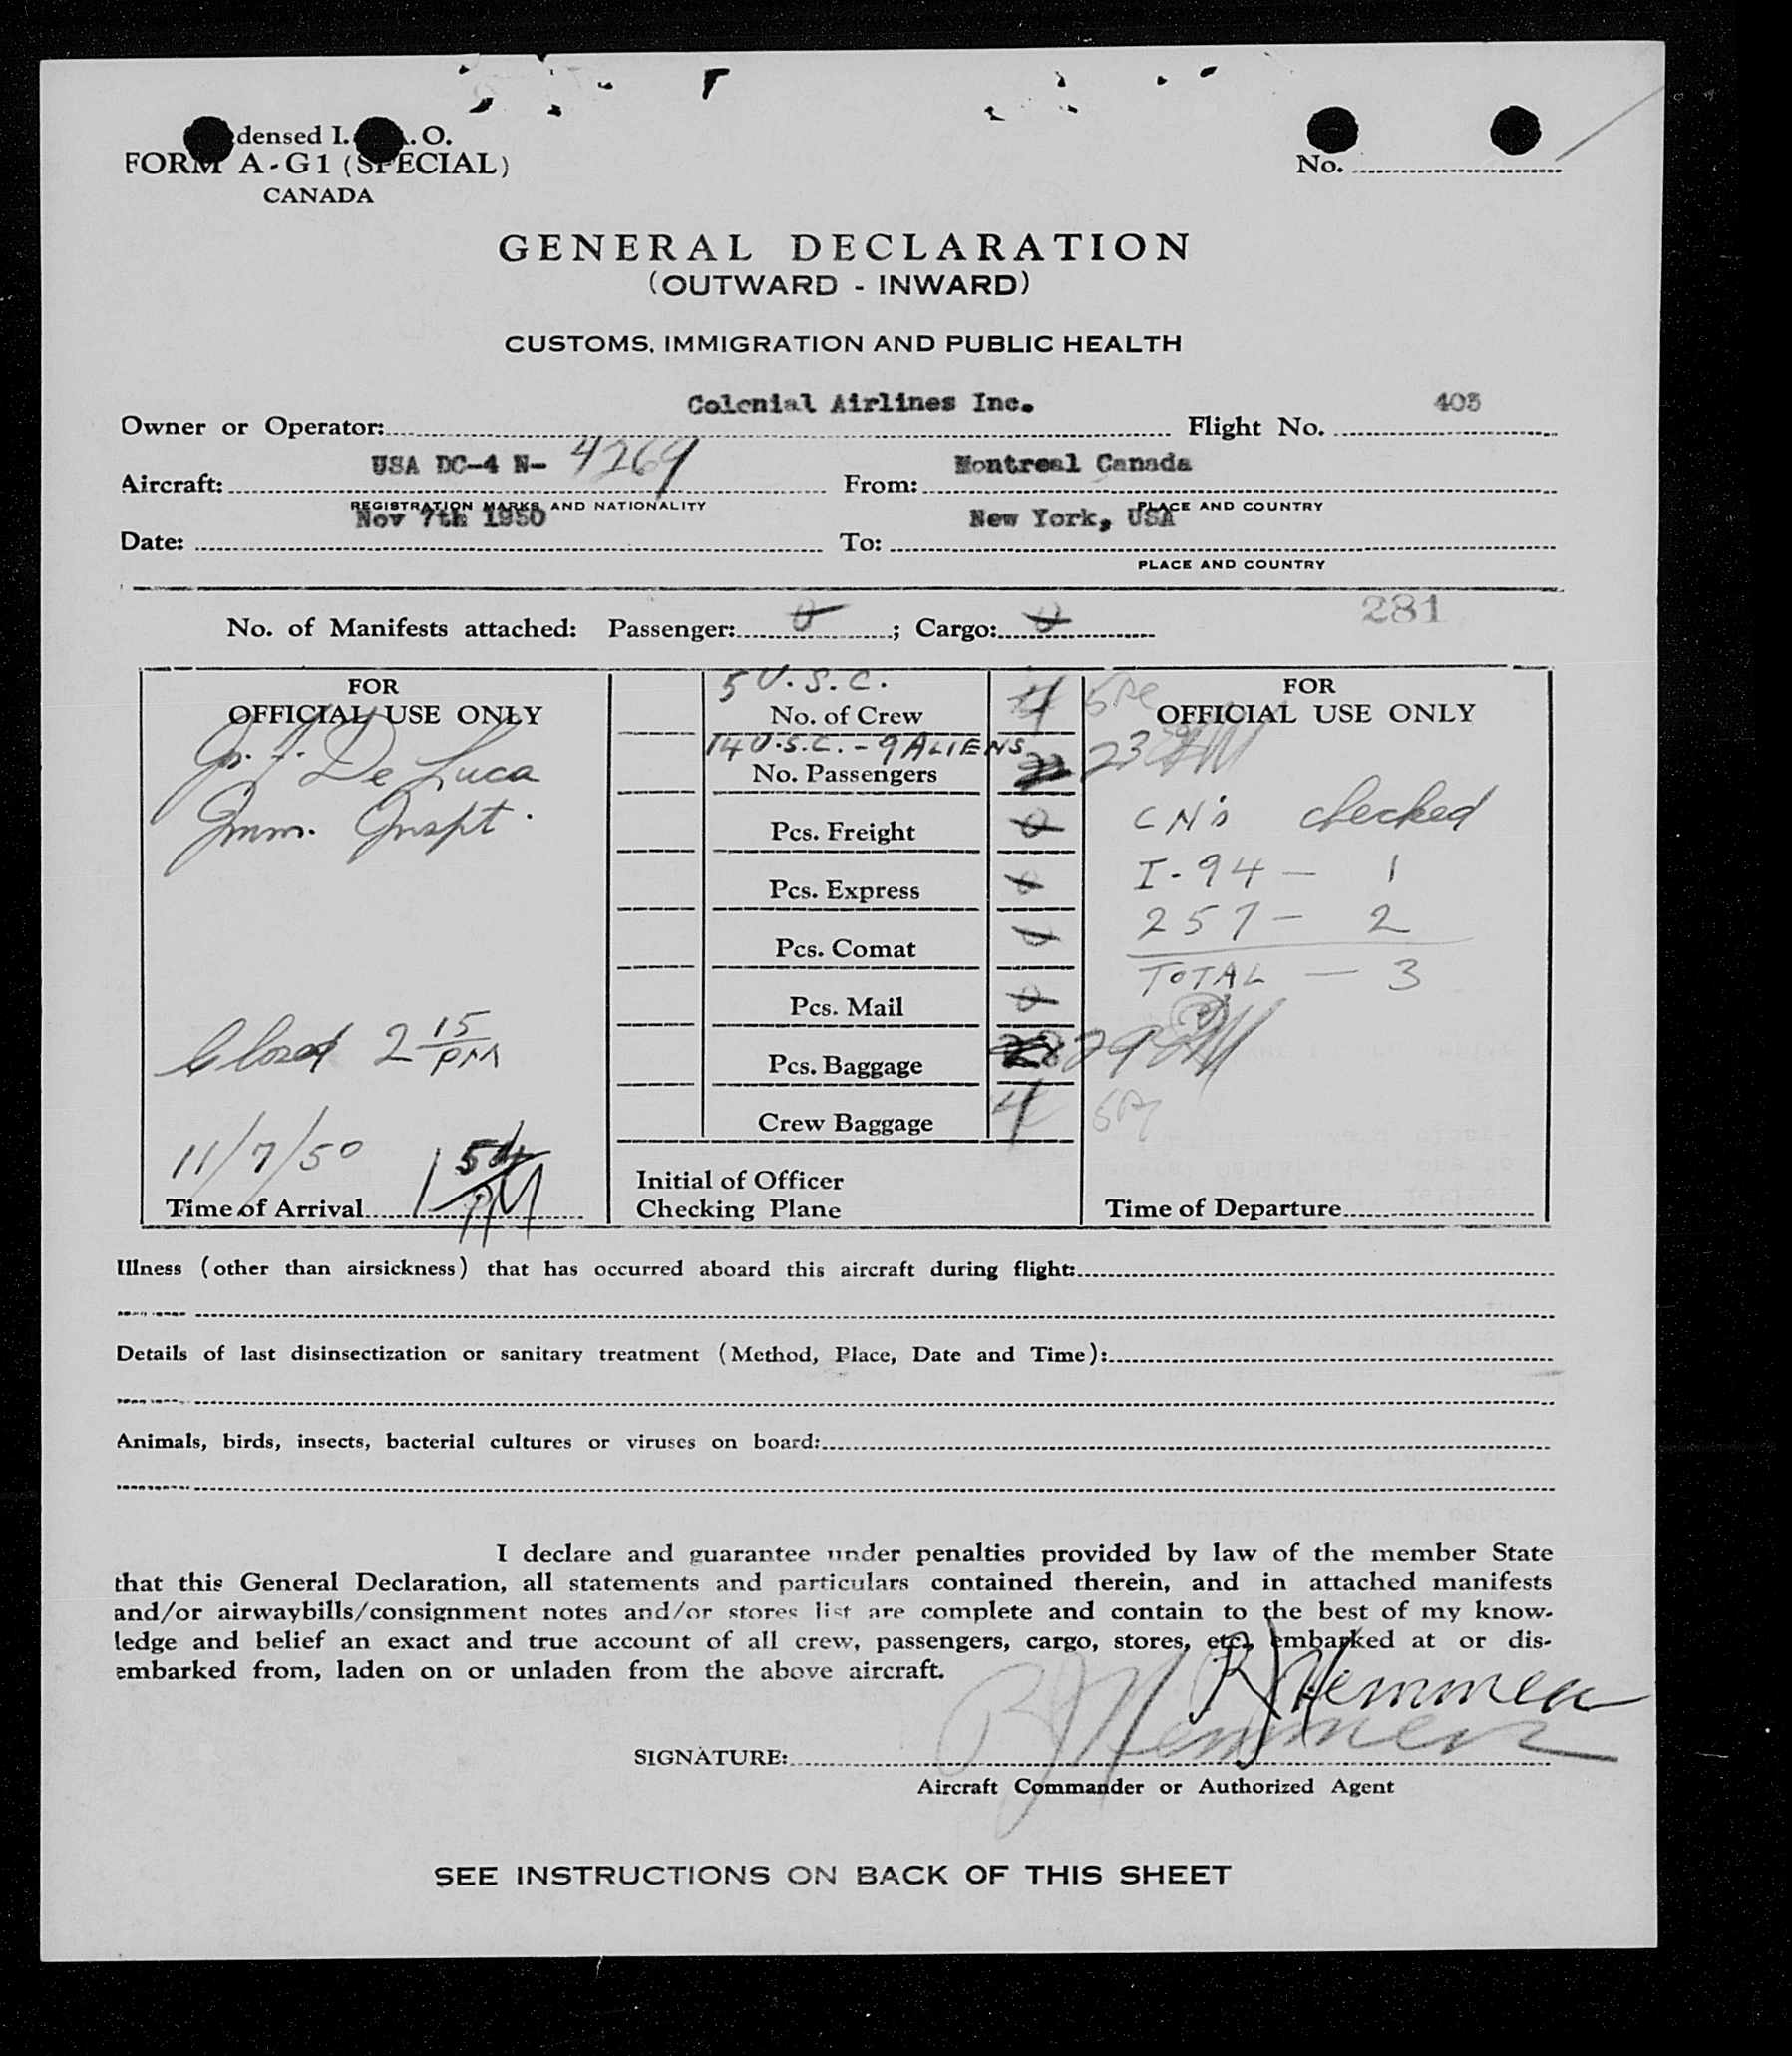 densed I. .O.
FORM A-G1 (SPECIAL)
CANADA
No.
GENERAL DECLARATION
(OUTWARD - INWARD)
CUSTOMS, IMMIGRATION AND PUBLIC HEALTH
Owner or Operator: Colonial Airlines Inc. Flight No. 403
Aircraft: USA DC-4 N- 4269 From: Montreal Canada
REGISTRATION MARKS AND NATIONALITY PLACE AND COUNTRY
Date: Nov 7th 1950 To: New York, USA
PLACE AND COUNTRY
281
No. of Manifests attached: Passenger: 0; Cargo: 0
FOR
OFFICIAL USE ONLY
De Luca
Imm. Inspt.
Closed 2 15 PM
11/7/50
Time of Arrival 1 54 PM
5 U.S.C.
No. of Crew 4 5
14 U.S.C. - 9 ALIENS
No. Passengers 23
Pcs. Freight 0
Pcs. Express 0
Pcs. Comat 0
Pcs. Mail 0
Pcs. Baggage 28 29
Crew Baggage 4 5
Initial of Officer
Checking Plane
FOR
OFFICIAL USE ONLY
CN's checked
I-94 - 1
257 - 2
TOTAL - 3
Time of Departure
Illness (other than airsickness) that has occurred aboard this aircraft during flight:
Details of last disinsectization or sanitary treatment (Method, Place, Date and Time):
Animals, birds, insects, bacterial cultures or viruses on board:
I declare and guarantee under penalties provided by law of the member State
that this General Declaration, all statements and particulars contained therein, and in attached manifests
and/or airwaybills/consignment notes and/or stores list are complete and contain to the best of my know-
ledge and belief an exact and true account of all crew, passengers, cargo, stores, etc., embarked at or dis-
embarked from, laden on or unladen from the above aircraft.
R J Hemmen
R J Hemmen
SIGNATURE:
Aircraft Commander or Authorized Agent
SEE INSTRUCTIONS ON BACK OF THIS SHEET